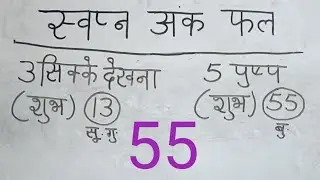 स्वप्न अंक फल
3 सिक्के देखना 5 पुष्प
(शुभ) 13 (शुभ) 55
सू. गु. बु.
55